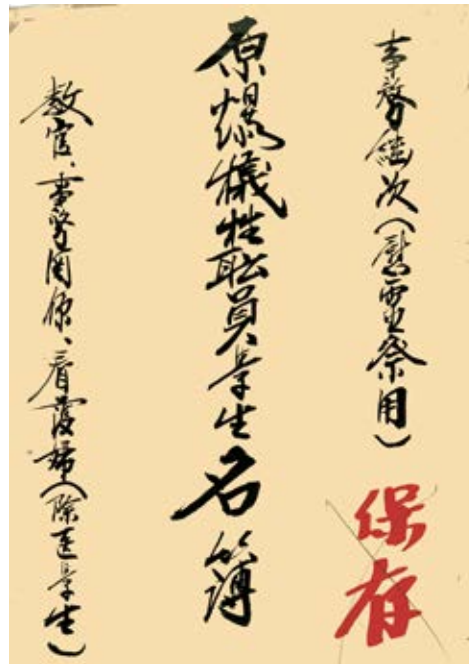 事務継次（慰霊祭用）
保存
原爆犠牲職員学生名簿
教官、事務関係、看護婦（除医学生）